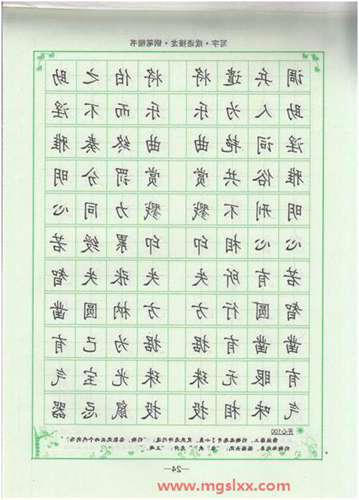 写字·成语接龙·钢笔楷书
调兵遣将 将伯之助
助人为乐 乐而不淫
淫词艳曲 曲终奏雅
雅俗共赏 赏罚分明
明刑不戮 戮力同心
心心相印 印累绶若
若有所失 失张失智
智圆行方 方枘圆凿
凿凿有据 据为己有
有眼无珠 珠光宝气
气味相投 投鼠忌器
开心100
—24—
www.mgslxx.com